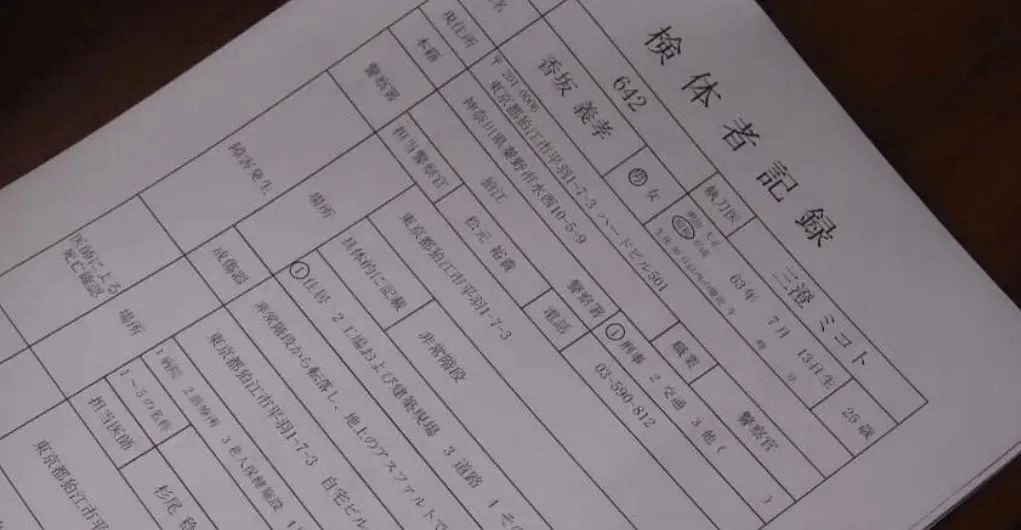 検体者記録
642 執刀医 三澄 ミコト
名 香坂 義孝 男 女 明治 大正 昭和 平成 63年 7月 13日生 25歳
現住所 〒201-0006
東京都狛江市平羽1-7-3 ハードビル501 職業 警察官
本籍 神奈川県秦野市水西10-5-9
警察署 狛江 警察署 ①刑事 2 交通 3 他( )
担当警察官 松元 裕貴 電話 03-590-812
障害発生 場所 東京都狛江市平羽1-7-3
具体的に記載 非常階段
①住居 2 工場および建築現場 3 道路 4 その
成傷器 非常階段から転落し、地上のアスファルトで
医師による死亡確認 場所 東京都狛江市平羽1-7-3 自宅ビル
1 病院 2 診療所 3 老人保健施設
1~3の名称
担当医師 杉尾
東京都狛江市平